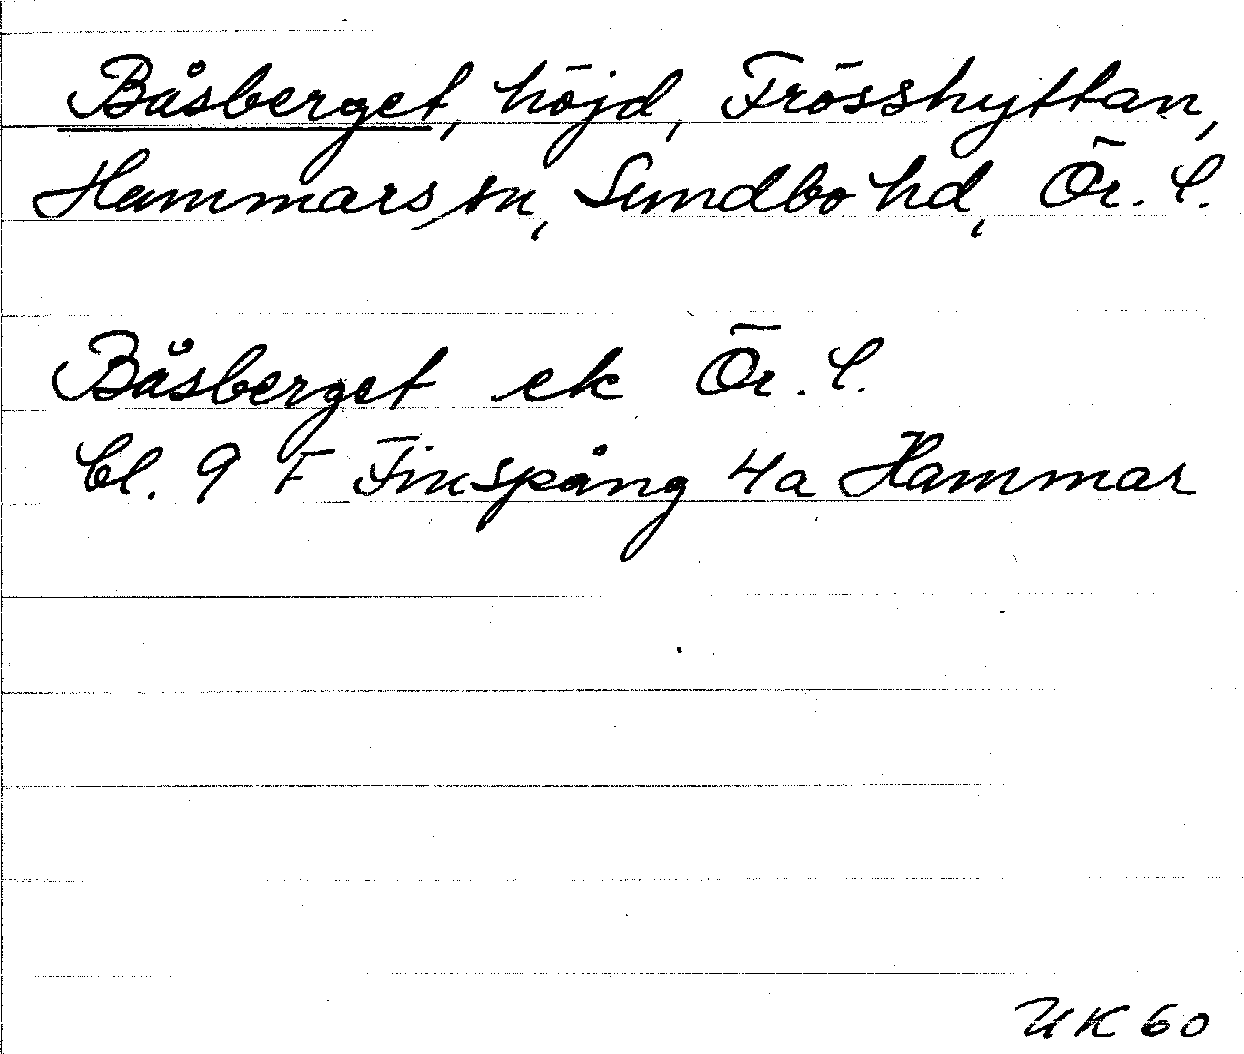 Båsberget, höjd, Frösshyttan,
Hammars sn, Sundbo hd, Ör. l.
Båsberget ek Ör. l.
bl. 9 F Finspång 4a Hammar
UK 60